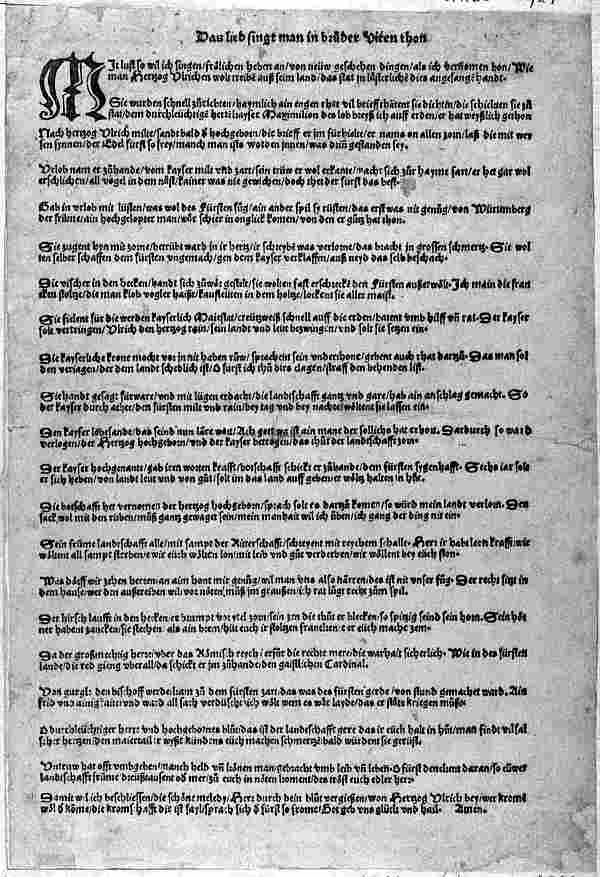 Das lied singt man in brůder Viten thon
MIt lust so wil ich singen/frölichen heben an/von neüw geschehen dingen/als ich vernomen hon/Wie
man Hertzog Ulrichen wolt treibē auß seim land/das
Sie wurden schnell zů richten/haymlich ain engen rhat vil
stat/dem durchleüchtigē herrē kayser Maximilion des lob
Nach hertzog Ulrich milte/sandt bald der hochgeborn/die brieff er jm fürhielte/er nams on allen zorn/laß die mit wey
sen synnen/der Edel fürst so frey/manch man ists worden innen/was
Urlob nam er zůhande/vom kayser milt vnd zart/sein trüw er wol erkante/macht sich zůr hayme fart/er hat gar wol
erschlichen/all vögel in dem näst/kainer was nie gewichen/doch thet der fürst das best.
Gab in vrlob mit lüsten/was wol des Fürsten fůg/ain ander spil sy rüsten/das erst was nit genůg/von Würtemberg
der frůme/ain hochgelopter man/wör schier in onglick komen/von den er gůtz hat thon.
Sie zugent hyn mit zorne/betrübt ward in ir hertz/ir schreybē was verlorne/das bracht in grossen schmertz. Sie wol
ten selber schaffen dem fürsten vngemach/gen dem kayser verklaffen/auß neyd das selb beschach.
Die vischer in den hecken/hand sich zůwör gestelt/sie wolten fast erschreckē den Fürsten außerwölt. Ich main die fran
cken stoltze/die man klob vogler haißt/kautzleüten in dem holtze/locken sie aller maist.
Sie fielent für die werden kayserlich Maiestat/creützweiß schnell auff die erden/batent vmb hilff vn̄ rat. Der kayser
solt vertringen/Ulrich den hertzog rain/sein landt vnd leüt bezwingen/vnd solt sie setzen ein.
Die kayserliche krone mocht vor jn nit haben růw/sprachent sein vnderthone/gebent auch rhat dartzů. Das man sol
den veriagen/der dem landt schedlich ist/O fürst ich thů dirs clagen/straff den behenden list.
Sie handt gesagt fürware/vnd mit lügen erdacht/die landtschafft gantz vnd gare/hab ain anschlag gemacht. So
der kayser durch achte/den fürsten milt vnd rain/bey tag vnd bey nachte/wöltens sie lassen ein.
Den kayser lobesande/das seind nun läre wort/Ach gott wa ist ain mane der sollichs hat erhort. Dardurch so ward
verlogen/der Hertzog hochgeborn/vnd der kayser betrogen/das thůt der landtschafft zorn.
Der kayser hochgenante/gab irem worten krafft/botschafft schickt er zůhande/dem fürsten sygenhafft. Sechs iar solt
er sich heben/von landt leüt vnd von gůt/solt im das land auff geben/er wöltz halten in hůt.
Die botschafft het vernomen der hertzog hochgeborn/sprach solt es dartzů komen/so würd mein landt verlorn. Den
sack wol mit den růben/můß gantz gewaget sein/mein manhait wil ich üben/ich gang der ding nit ein.
Sein frůme landtschafft alle/mit sampt der Ritterschafft/schryent mit reychem schalle. Herr ir habt leen krafft/wir
wöllent all sampt sterben/ewir eüch wöllen lon/mit leib vnd gůt verderben/wir wöllent bey eüch ston.
Was dörff wir zehen herren/an aim hont mir genůg/wil man vns also närren/des ist nit vnser fůg. Der recht sitzt in
dem hause/wer den außtreiben wil/vor nöten můß jm graußen/ich rat lůgt recht zům spil.
Der hirsch laufft in den hecken/er brumpt vor zorn/sein zen die thůt er blecken/so spitzig seind sein horn. Sein hör
ner habent zancken/sie stechen/als ain brem/hilt eüch ir stoltzen francken/er eüch mache zem.
Da der großmechtig herre/vber das Römisch reych/erfür die rechte mere/die warhait sicherlich. Wie in des fürsten
lande/die red gieng vberall/da schickt er jm zůhande/den gaistlichen Cardinal.
Von gurgk den bischoff werde/kam zů dem fürsten zart/das was des fürsten gerde/von stund gemachet ward. Ain
frid vnd ainigkait/vnd ward all sach
O durchleüchtiger herre vnd hochgebornes blůt/das ist der landtschafft gere das ir eüch halt in hůt/man findt vil fal
scher hertzen/den maiertail ir wyßt
Untreuw hat offt vmbgeben/manch held vn̄ künen man/gebracht vmb leib vn̄ leben. O fürst dencken daran/so eüwer
landtschafft frůme dreüßtausent od mer/zů euch in nöten koment/des tröst eüch edler herr.
Damit wil ich beschliessen/die schöne melody/Herr durch dein blůt vergießen/won Hertzog Ulrich bey/wer
Got geb vns glück vnd hail. Amen.